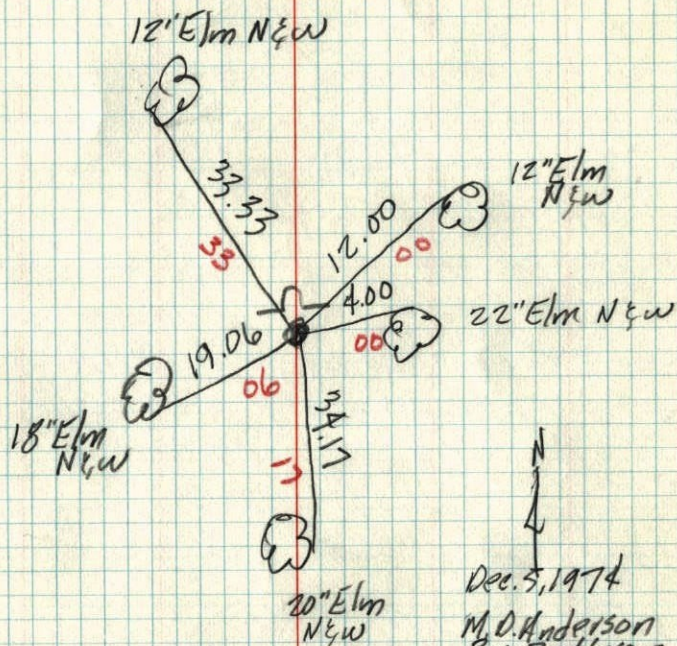 12" Elm N&W
33.33
33
12" Elm
N&W
12.00
00
4.00
00
22" Elm N&W
19.06
06
18" Elm
N&W
34.17
17
20" Elm
N&W
N
Dec. 5, 1974
M.D. Anderson